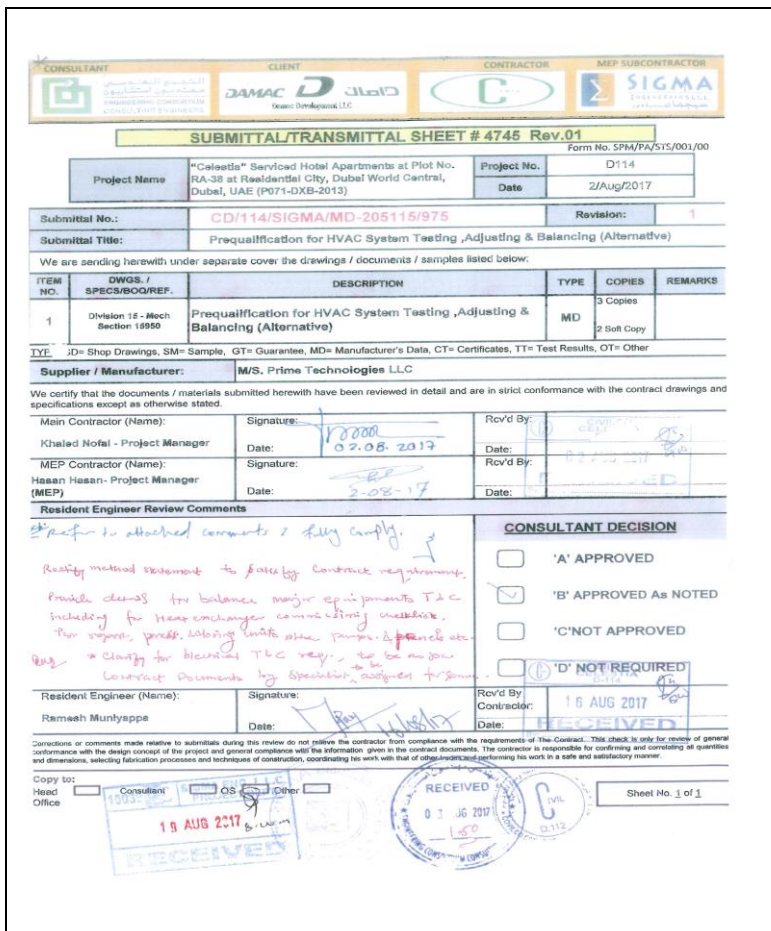 CONSULTANT
CLIENT
CONTRACTOR
MEP SUBCONTRACTOR
ENGINEERING CONSORTIUM
CONSULTING ENGINEERS
DAMAC D داماك
Damac Development LLC
C
SIGMA
SUBMITTAL/TRANSMITTAL SHEET # 4745 Rev.01
Form No. SPM/PA/STS/001/00
Project Name
"Celestia" Serviced Hotel Apartments at Plot No.
RA-38 at Residential City, Dubai World Central,
Dubai, UAE (P071-DXB-2013)
Project No.
D114
Date
2/Aug/2017
Submittal No.:
CD/114/SIGMA/MD-205115/975
Revision:
1
Submittal Title:
Prequalification for HVAC System Testing ,Adjusting & Balancing (Alternative)
We are sending herewith under separate cover the drawings / documents / samples listed below:
ITEM NO.
DWGS. / SPECS/BOQ/REF.
DESCRIPTION
TYPE
COPIES
REMARKS
1
Division 15 - Mech
Section 15950
Prequalification for HVAC System Testing ,Adjusting &
Balancing (Alternative)
MD
3 Copies
2 Soft Copy
SD= Shop Drawings, SM= Sample, GT= Guarantee, MD= Manufacturer's Data, CT= Certificates, TT= Test Results, OT= Other
Supplier / Manufacturer:
M/S. Prime Technologies LLC
We certify that the documents / materials submitted herewith have been reviewed in detail and are in strict conformance with the contract drawings and
specifications except as otherwise stated.
Main Contractor (Name):
Khaled Nofal - Project Manager
Signature:
Date: 02.08.2017
Rcv'd By:
Date:
MEP Contractor (Name):
Hasan Hasan- Project Manager
(MEP)
Signature:
Date: 2-08-17
Rcv'd By:
Date:
Resident Engineer Review Comments
Refer to attached comments & fully comply.
Rectify method statement to satisfy contract requirement.
Provide details for balance major equipments T&C
including for heat exchanger commissioning checklist.
* Clarify for electrical T&C req., to be as per
Contract Documents by Specialist, assigned
CONSULTANT DECISION
'A' APPROVED
'B' APPROVED As NOTED
'C'NOT APPROVED
'D' NOT REQUIRED
Resident Engineer (Name):
Ramesh Muniyappa
Signature:
Date: 16/08/17
Rcv'd By
Contractor:
Date:
16 AUG 2017
RECEIVED
Corrections or comments made relative to submittals during this review do not relieve the contractor from compliance with the requirements of The Contract. This check is only for review of general
conformance with the design concept of the project and general compliance with the information given in the contract documents. The contractor is responsible for confirming and correlating all quantities
and dimensions, selecting fabrication processes and techniques of construction, coordinating his work with that of other trades and performing his work in a safe and satisfactory manner.
Copy to:
Head Office
Consultant
OS
Other
19 AUG 2017
RECEIVED
RECEIVED
1:50
CIVIL
D.112
Sheet No. 1 of 1